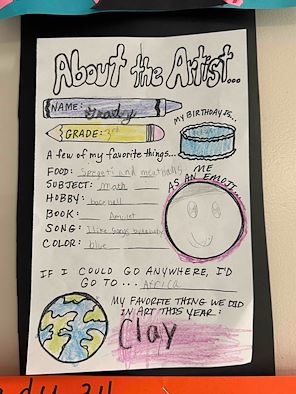 About the Artist...
NAME: Grady
MY BIRTHDAY IS...
GRADE: 3rd
A few of my favorite things...
FOOD: Spegeti and meatballs
SUBJECT: math
HOBBY: baseball
BOOK: Amulet
SONG: I like songs by
COLOR: blue
ME
AS AN EMOJI...
IF I COULD GO ANYWHERE, I'D
GO TO... Africa
MY FAVORITE THING WE DID
IN ART THIS YEAR:
Clay